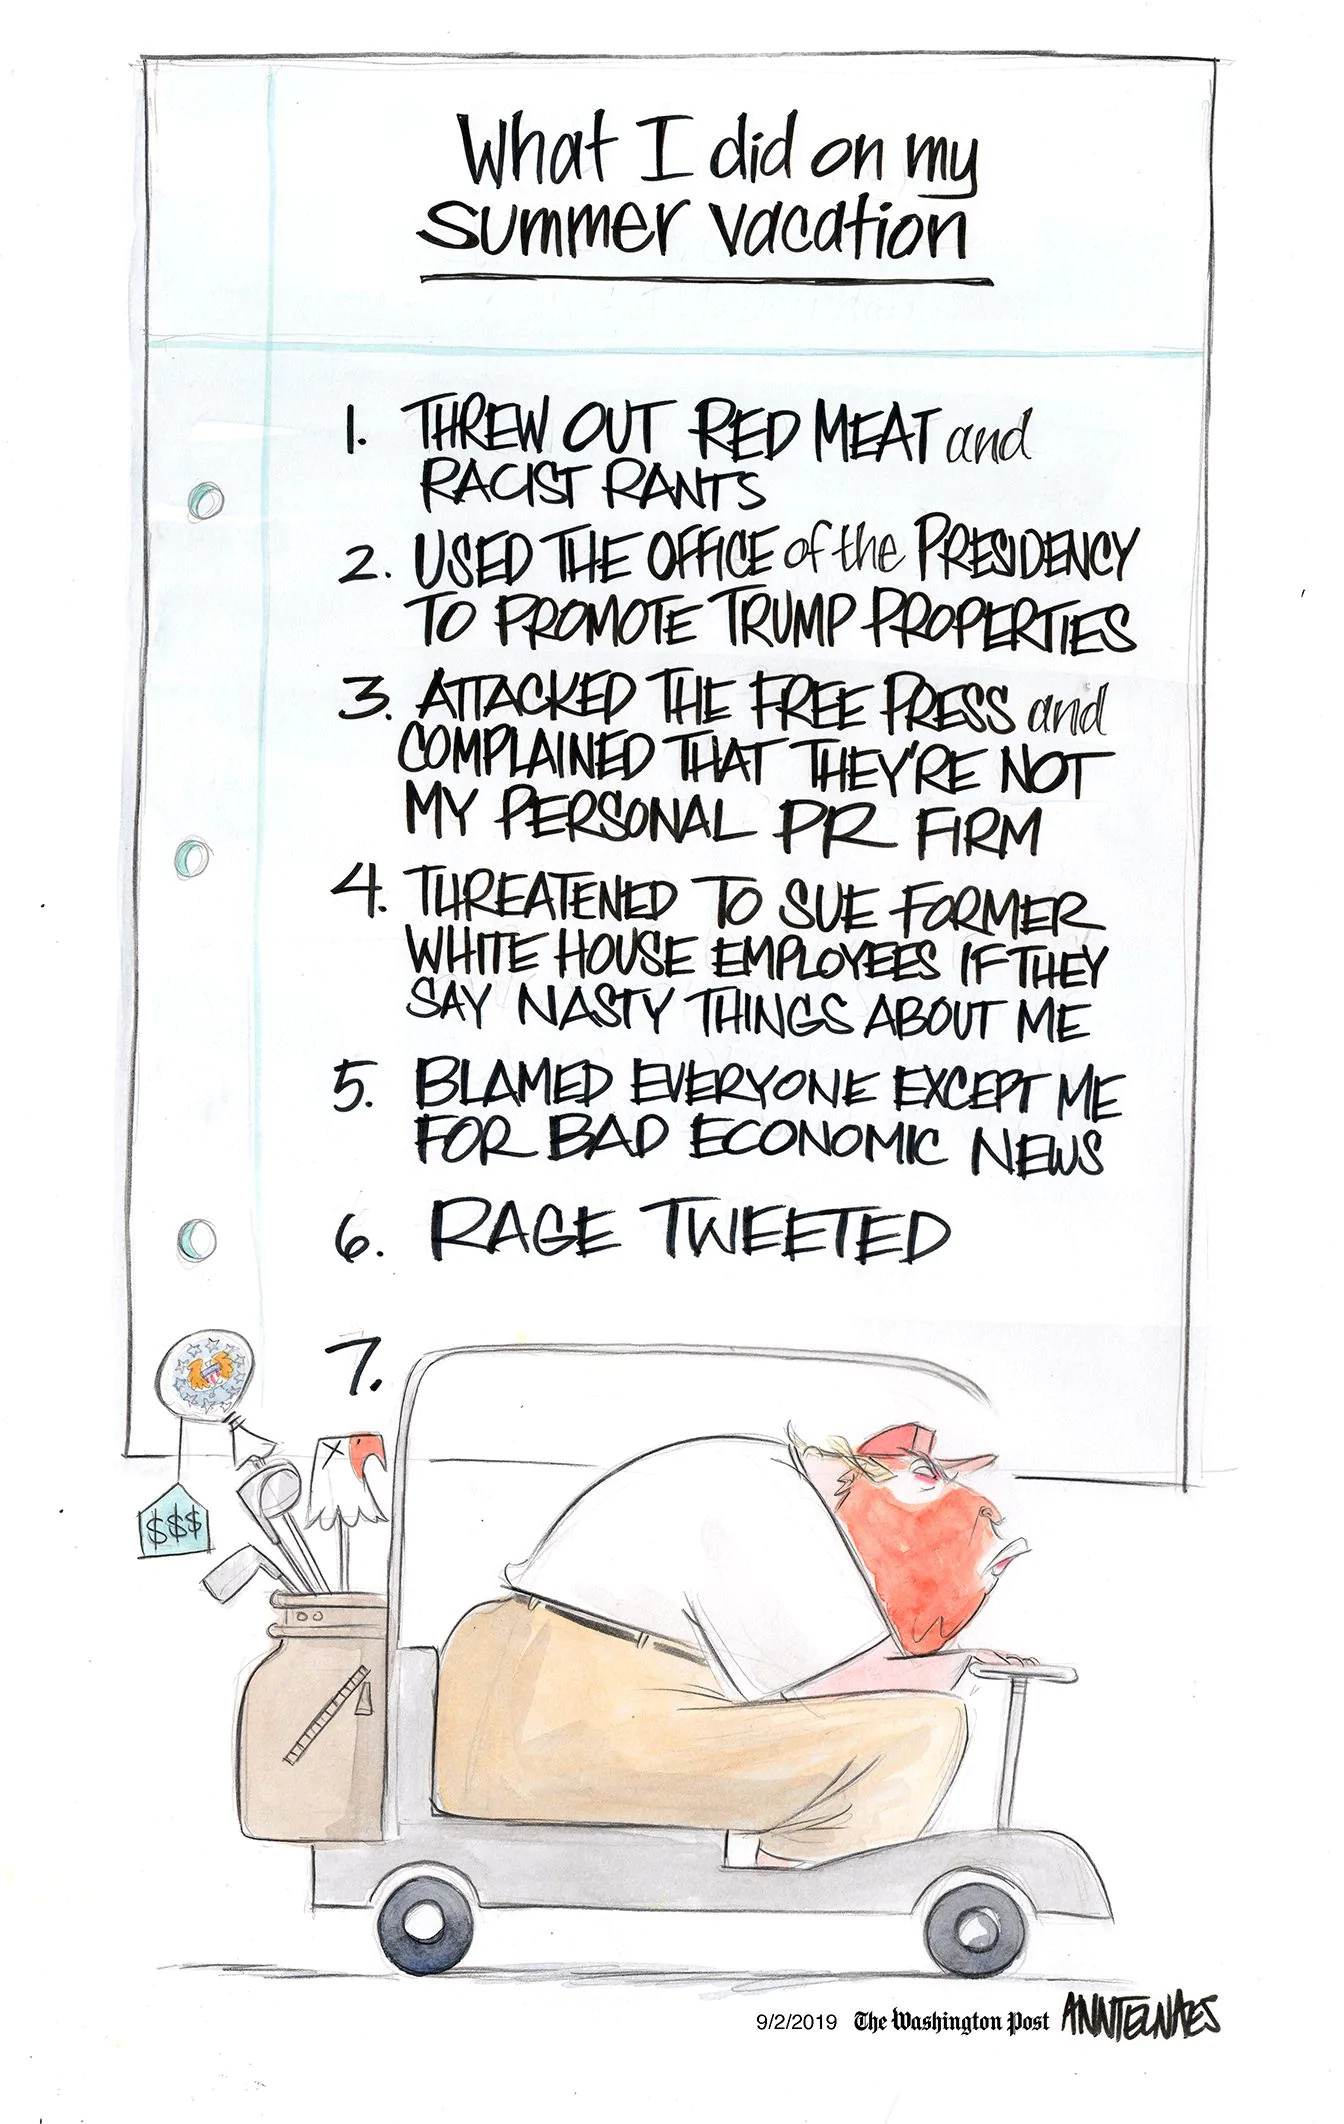 What I did on my
summer vacation
1. THREW OUT RED MEAT and
RACIST RANTS
2. USED THE OFFICE of the PRESIDENCY
TO PROMOTE TRUMP PROPERTIES
3. ATTACKED THE FREE PRESS and
COMPLAINED THAT THEY'RE NOT
MY PERSONAL PR FIRM
4. THREATENED TO SUE FORMER
WHITE HOUSE EMPLOYEES IF THEY
SAY NASTY THINGS ABOUT ME
5. BLAMED EVERYONE EXCEPT ME
FOR BAD ECONOMIC NEWS
6. RAGE TWEETED
7.
$$$
9/2/2019 The Washington Post ANNTELNAES